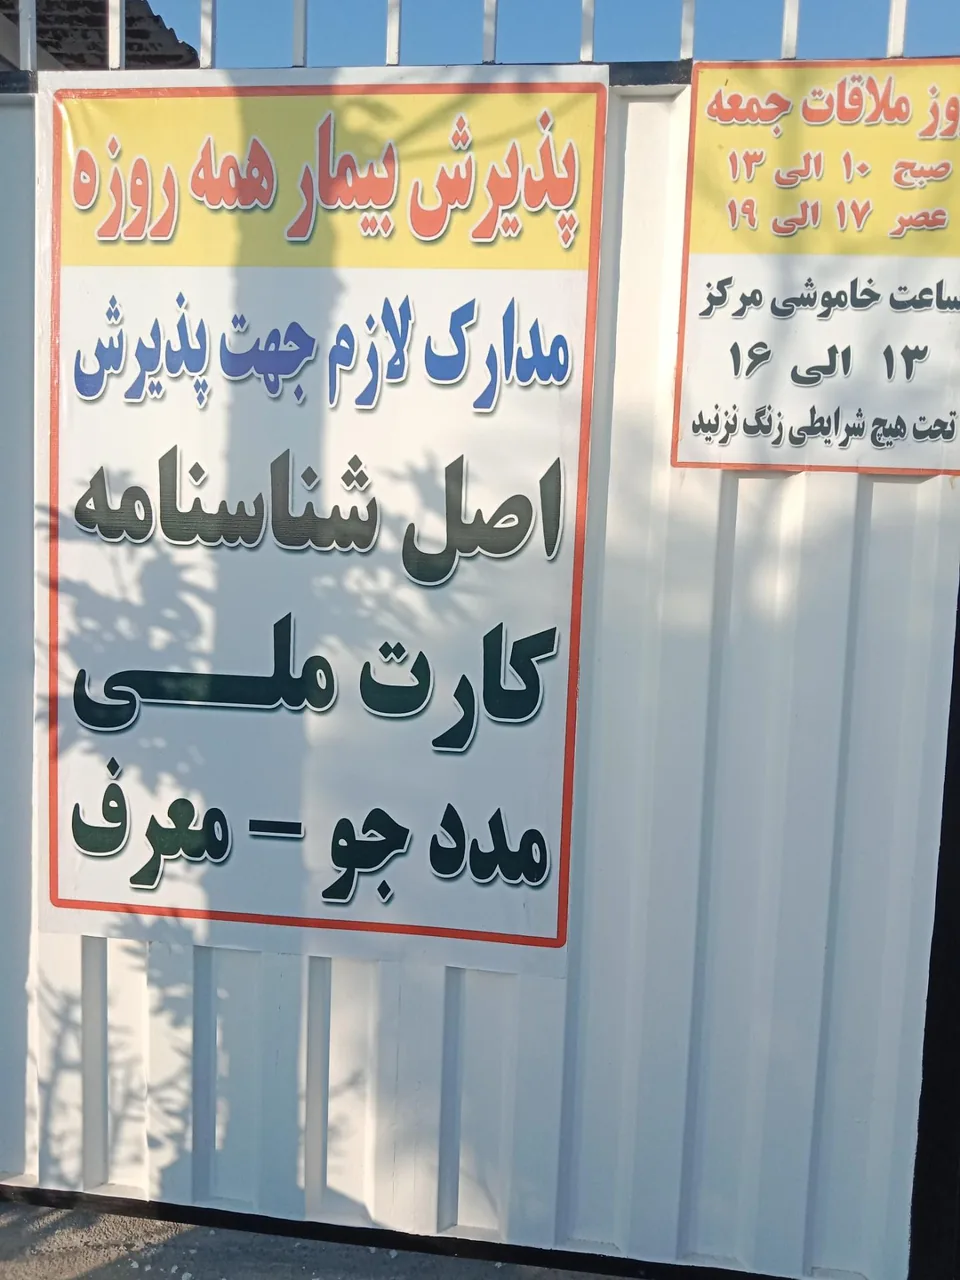 پذیرش بیمار همه روزه
مدارک لازم جهت پذیرش
اصل شناسنامه
کارت ملی
مدد جو - معرف
ملاقات جمعه
صبح ۱۰ الی ۱۳
عصر ۱۷ الی ۱۹
ساعت خاموشی مرکز
۱۳ الی ۱۶
تحت هیچ شرایطی زنگ نزنید